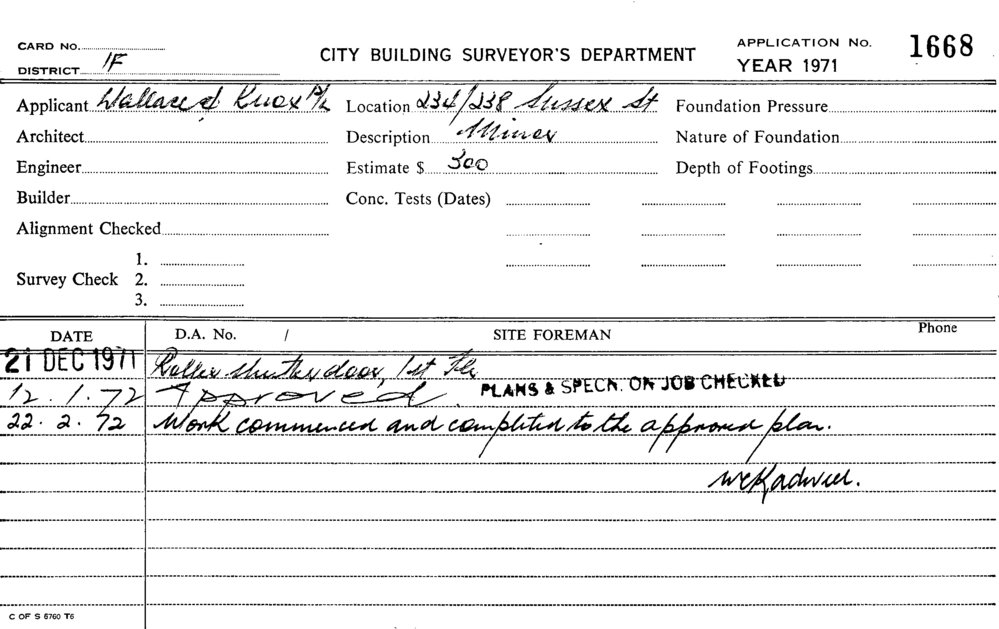 CARD No.
DISTRICT 1F
CITY BUILDING SURVEYOR'S DEPARTMENT
APPLICATION No. 1668
YEAR 1971
Applicant Wallace & Knox P/L
Location 234/238 Sussex St
Foundation Pressure
Architect
Description Minor
Nature of Foundation
Engineer
Estimate $ 300
Depth of Footings
Builder
Conc. Tests (Dates)
Alignment Checked
Survey Check 1.
2.
3.
DATE D.A. No. / SITE FOREMAN Phone
21 DEC 1971 Roller shutter door, 1st Flr
12.1.72 Approved. PLANS & SPECN. ON JOB CHECKED
22.2.72 Work commenced and completed to the approved plan.
C OF S 6760 T6